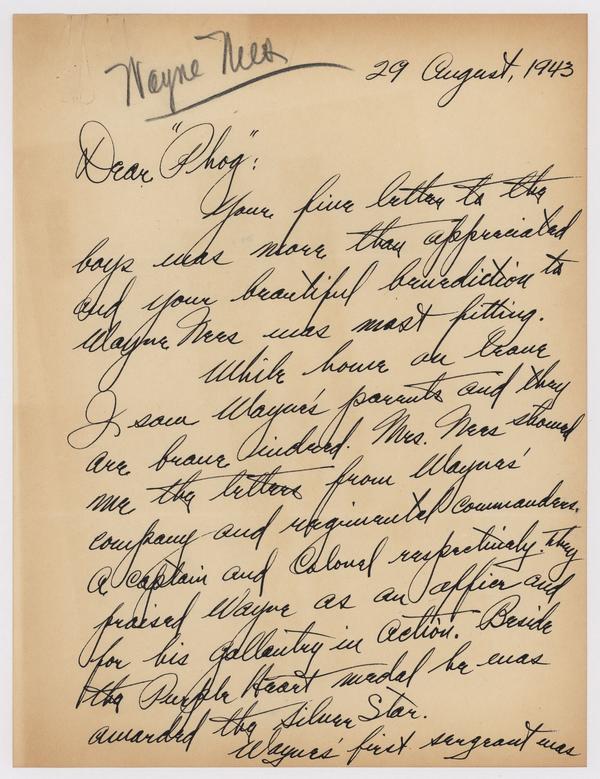 Wayne Nees
29 August, 1943
Dear "Phog":
Your fine letter to the
boys was more than appreciated
and your beautiful benediction to
Wayne Nees was most fitting.
While home on leave
I saw Wayne's parents and they
are brave indeed. Mrs. Nees showed
me the letters from Waynes'
company and regimental commanders,
a Captain and Colonel respectively. They
praised Wayne as an officer and
for his gallantry in action. Beside
the Purple Heart medal he was
awarded the Silver Star.
Waynes' first sergeant was